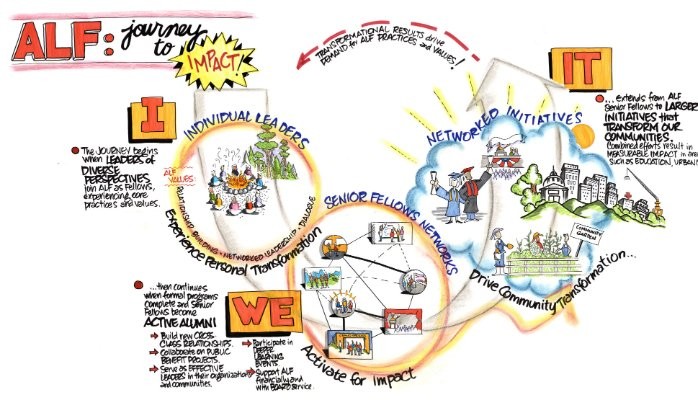 ALF: journey
to
IMPACT!
TRANSFORMATIONAL RESULTS drive
DEMAND for ALF PRACTICES and VALUES!
I
INDIVIDUAL LEADERS
The JOURNEY begins
when LEADERS of
DIVERSE
PERSPECTIVES
join ALF as Fellows,
experiencing core
practices and values.
ALF
VALUES
RELATIONSHIP BUILDING • NETWORKED LEADERSHIP • DIALOGUE
Experience Personal Transformation
WE
SENIOR FELLOWS NETWORKS
...then continues
when formal programs
complete and Senior
Fellows become
ACTIVE ALUMNI
→ Build new CROSS
CLASS RELATIONSHIPS.
→ Collaborate on PUBLIC
BENEFIT PROJECTS.
→ Serve as EFFECTIVE
LEADERS in their organizations
and communities.
→ Participate in
DEEPER
LEARNING
EVENTS
→ Support ALF
financially and
with BOARD service.
Activate for Impact
IT
NETWORKED INITIATIVES
... extends from ALF
Senior Fellows to LARGER
INITIATIVES that
TRANSFORM OUR
COMMUNITIES.
Combined efforts result in
MEASURABLE IMPACT in area
such as EDUCATION, URBAN
COMMUNITY
GARDEN
Drive Community Transformation...